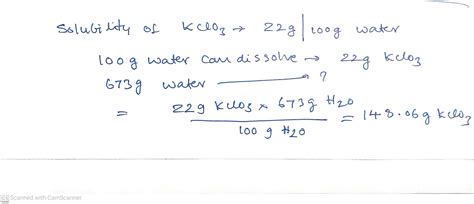 Solubility of KClO3 → 22g | 100g water
100g water can dissolve → 22g KClO3
673g water → ?
= 22g KClO3 × 673g H2O / 100 g H2O = 148.06g KClO3
CS Scanned with CamScanner